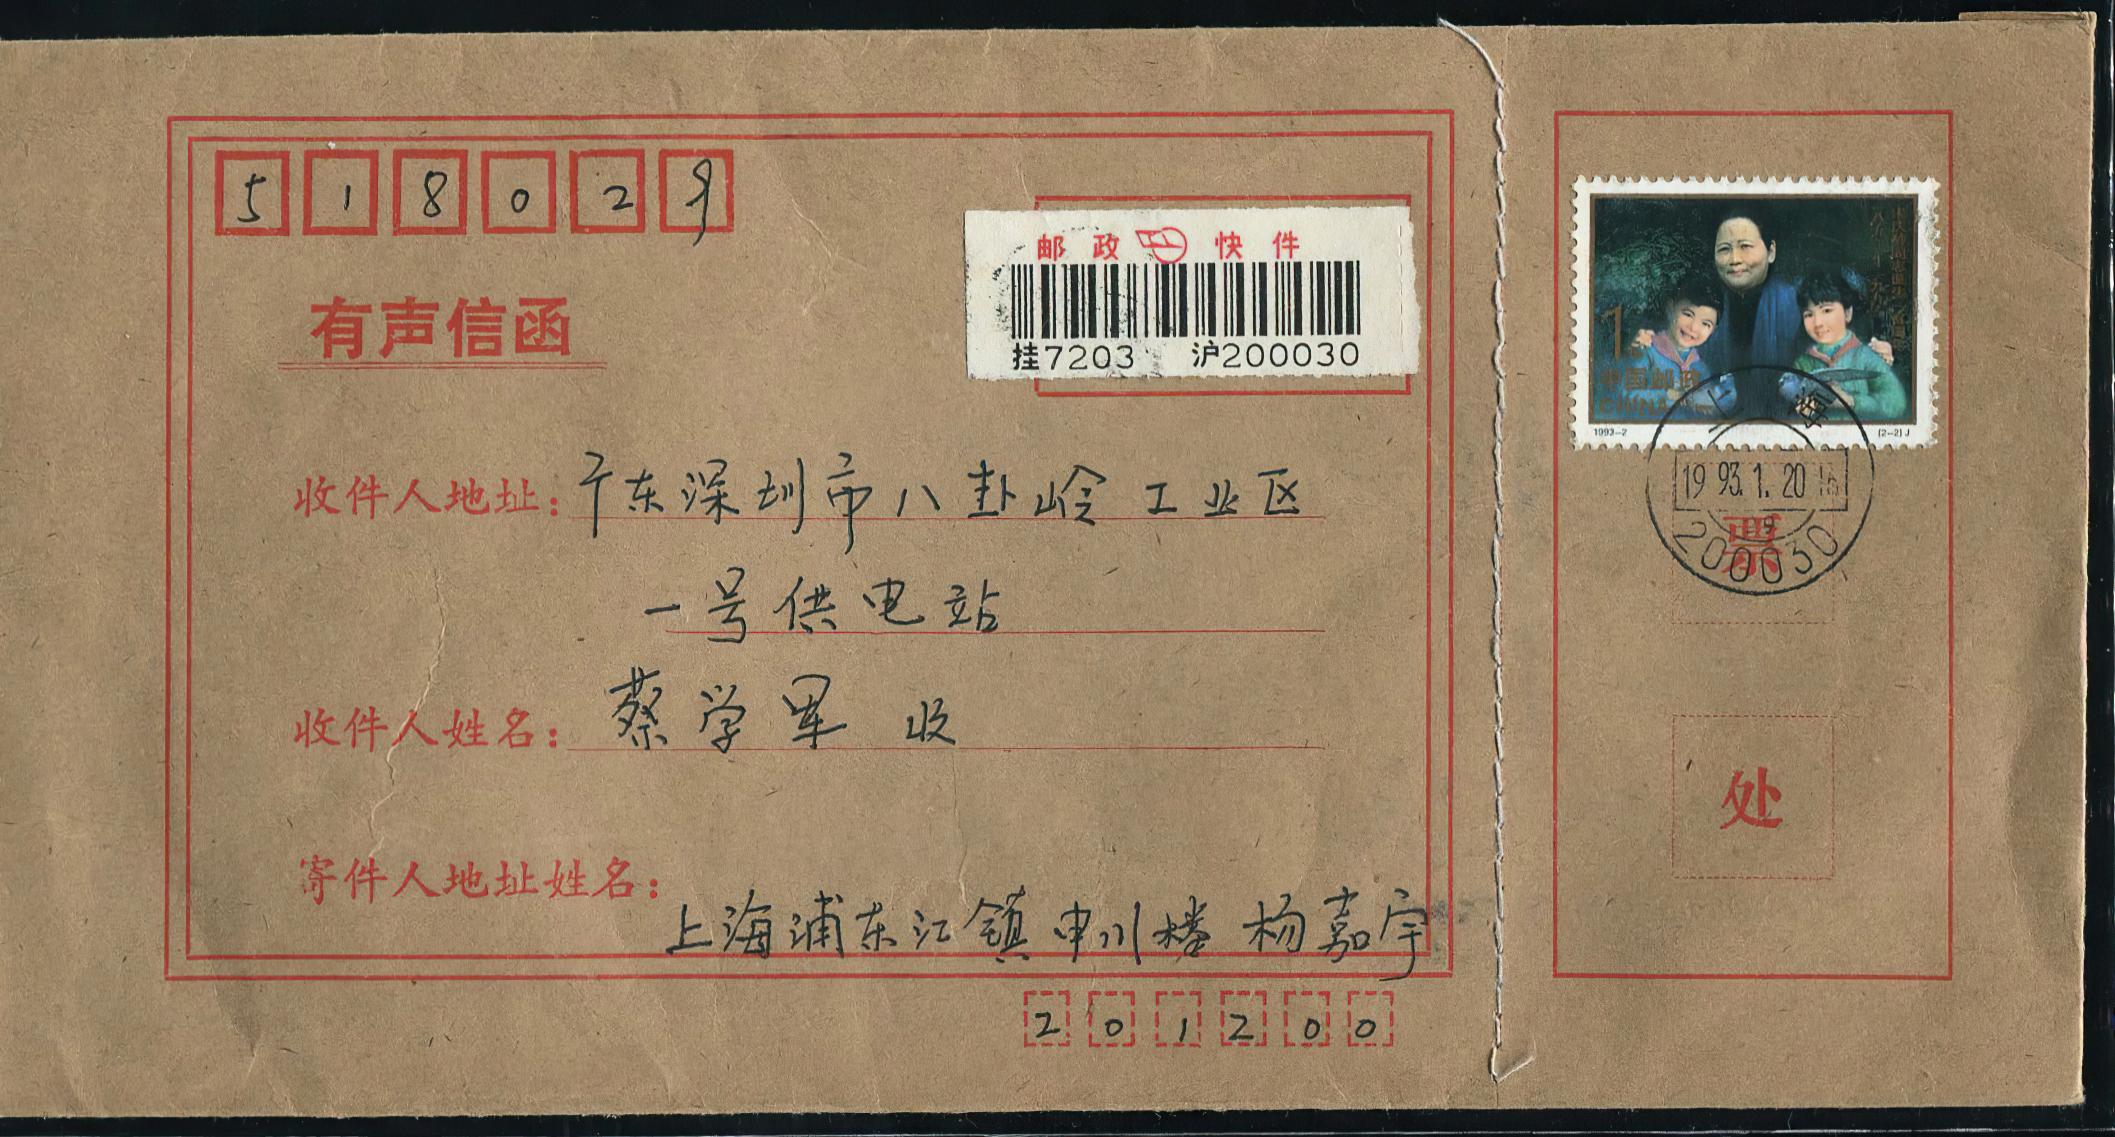 518029
邮政 快件
挂7203 沪200030
有声信函
收件人地址：广东深圳市八卦岭工业区
一号供电站
收件人姓名：蔡学军 收
寄件人地址姓名：
上海浦东江镇申川楼 杨嘉宇
201200
1
中国邮政
CHINA
1993-2 (2-2)J
上海
1993.1.20 16
200030
票
处